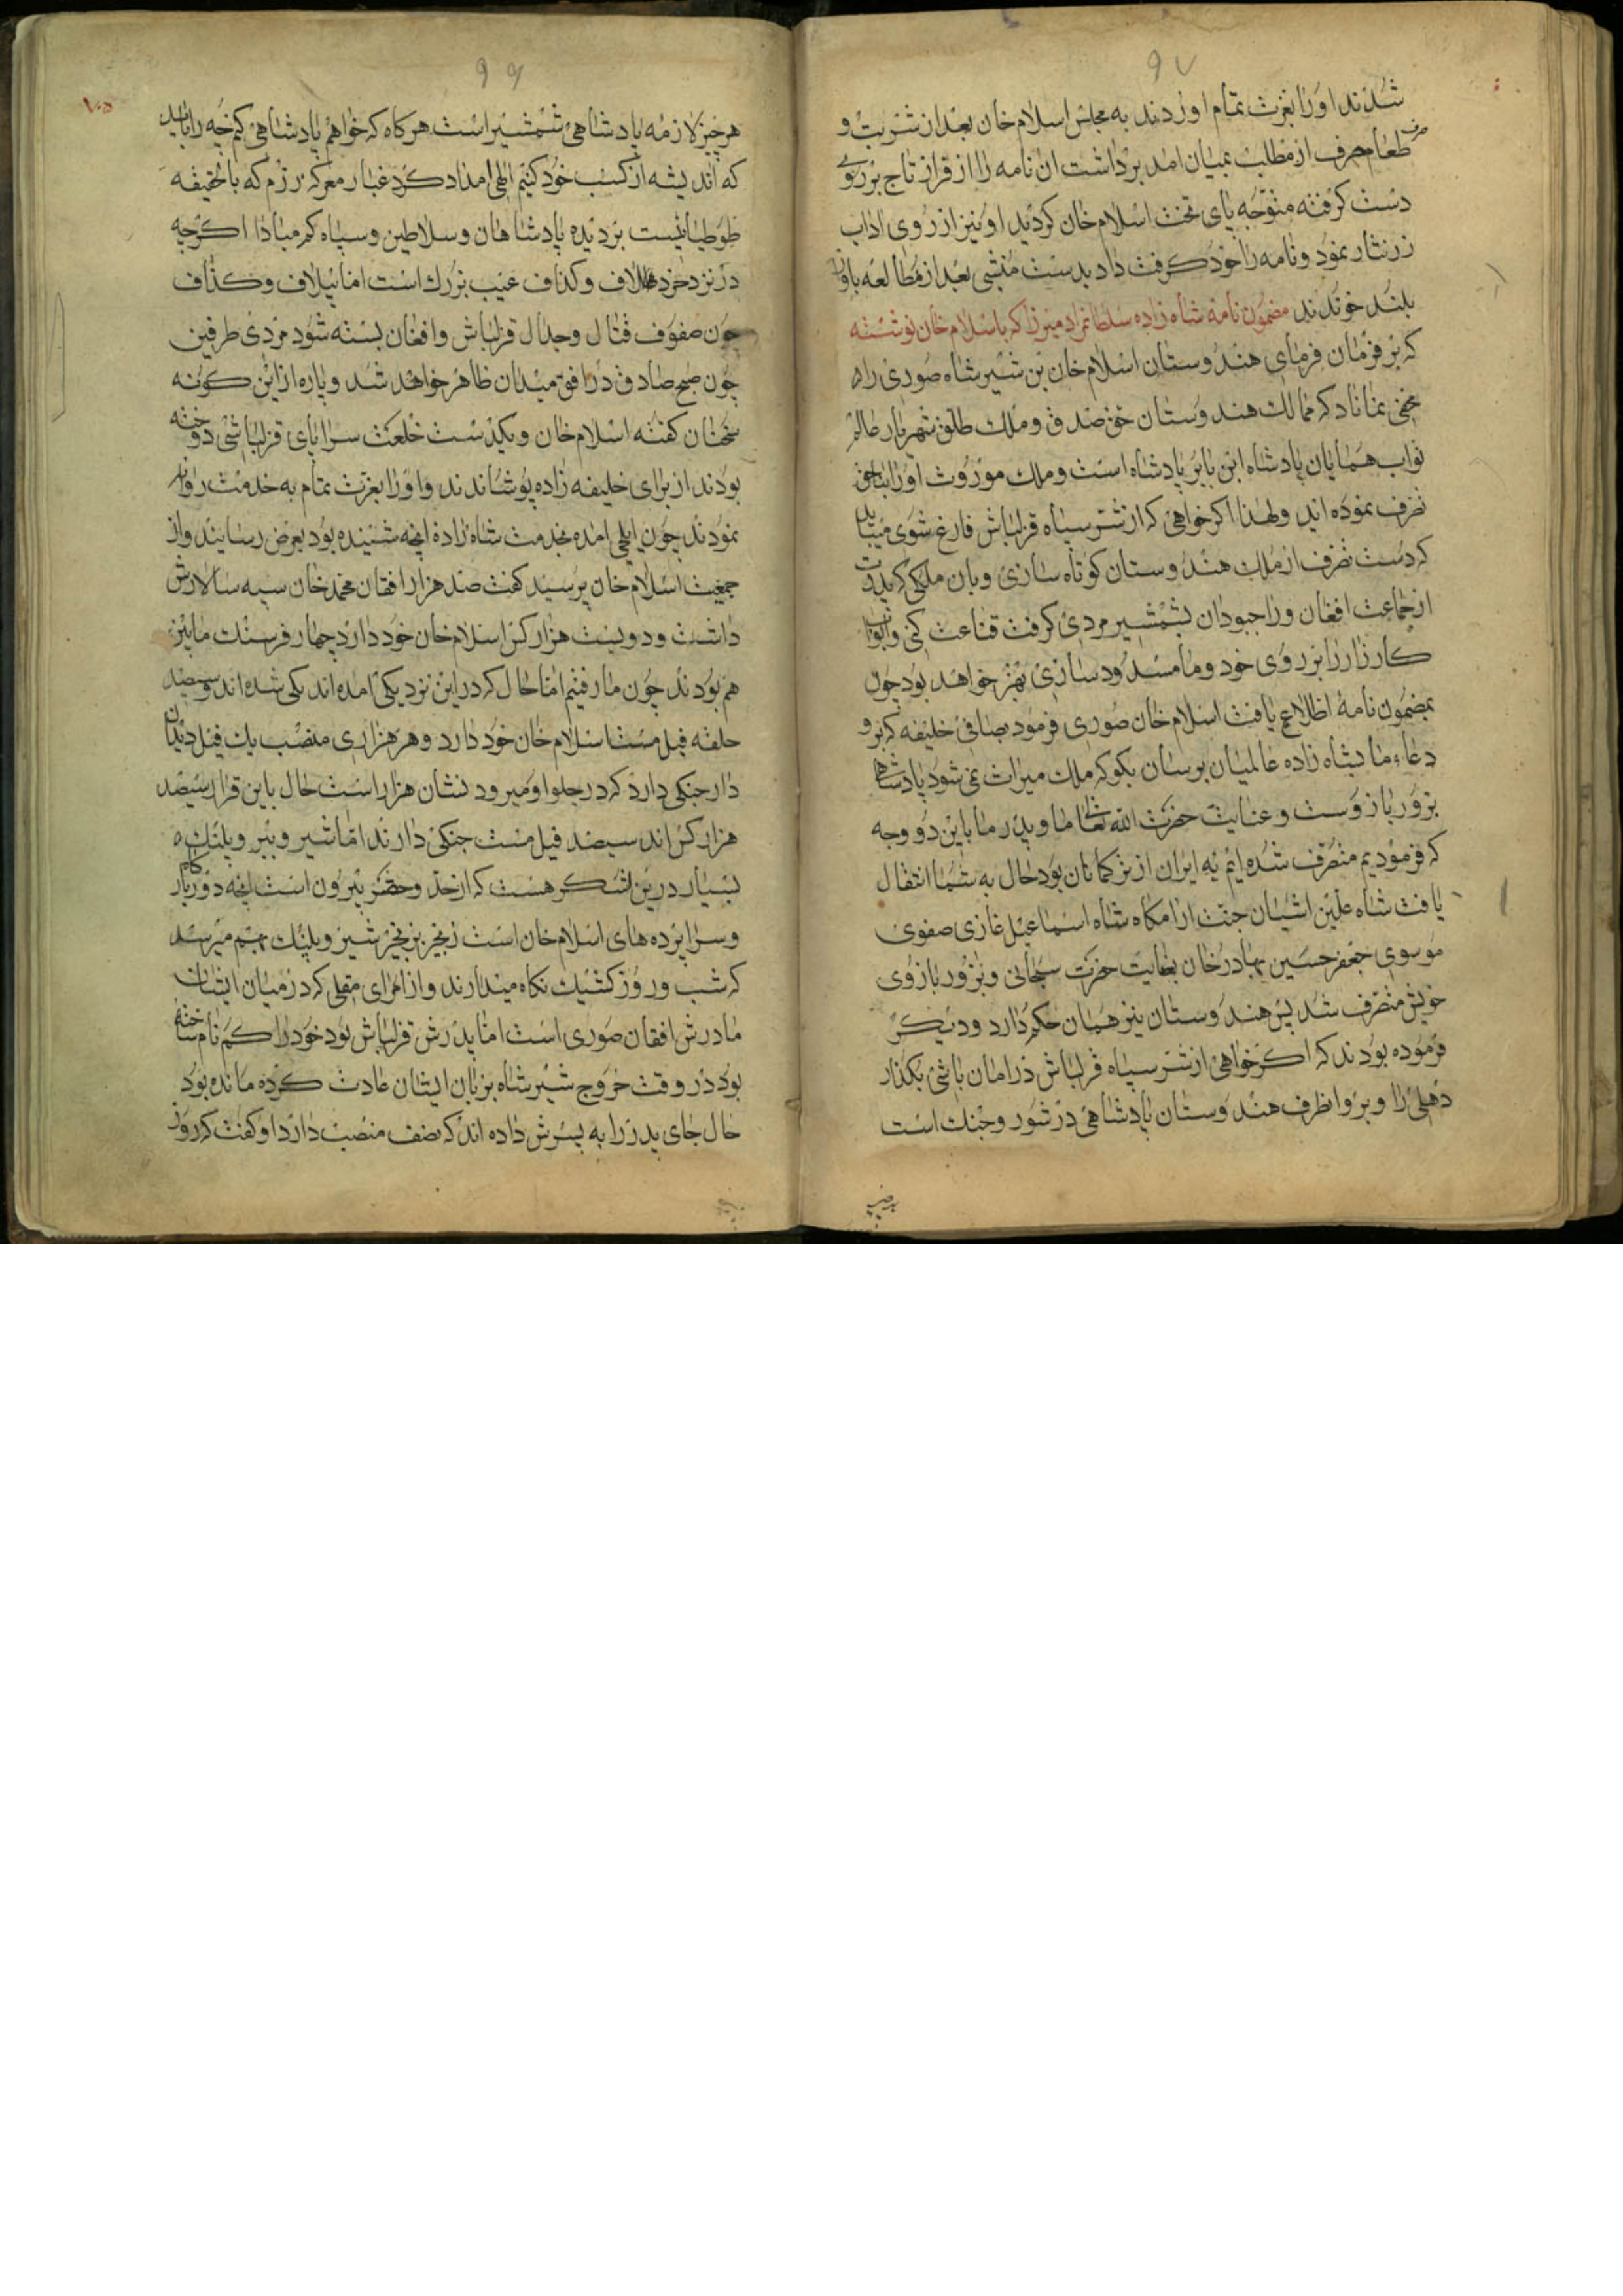 ۹۷
شدند او را بعزت تمام اوردند به مجلس اسلام خان بعد از شربت و
طعام حرف از مطلب بمیان امد برداشت ان نامه را از قراز تاج بر روی
دست کرفته متوجه پای تخت اسلام خان کردید او نیز از روی اداب
زر نثار نمود و نامه را خود کرفت داد بدست منشی بعد از مطالعه باواز
بلند خوندند مضمون نامهٔ شاه زاده سلطانمراد میرزا که باسلام خان نوشته
که بر فرمان فرمای هندوستان اسلام خان بن شیر شاه صوری راه
مخفی نماناد که ممالک هندوستان حق صدق و ملک طلق شهریار عالم
نواب همایان پادشاه ابن بابر پادشاه است و ملک موروث او را بناحق
تصرف نموده اند ولهذا اکر خواهی که از شر سپاه قزلباش فارغ شوی میباید
که دست تصرف از ملک هندوستان کوتاه سازی و بان ملکی که پدرت
از جماعت افغان و راجبودان بشمشیر مردی کرفت قناعت کنی و ابواب
کارزار را بر روی خود و ما مسدود سازی بهتر خواهد بود چون
بمضمون نامهٔ اطلاع یافت اسلام خان صوری فرمود بصافی خلیفه که برو
دعاء ما بشاه زاده عالمیان برسان بکو که ملک میراث نمی شود پادشاهی
بزور بازوست و عنایت حضرت الله تعالی ما و پدر ما باین دو وجه
که فرمودیم متصرف شده ایم نه ایران از ترکمانان بود حال به شما انتقال
یافت شاه علیین اشیان جنت ارامکاه شاه اسماعیل غازی صفوی
موسوی جعفر حسین بهادرخان بعنایت حضرت سبحانی و بزور بازوی
خویش متصرف شد پس هندوستان نیز همان حکم دارد و دیکر
فرموده بودند که اکر خواهی از شر سپاه قزلباش در امان باشی بکذار
دهلی را و برو انطرف هندوستان پادشاهی در شور و جنک است
۹۶
۱۰۵
هر چیز لازمه پادشاهی شمشیر است هر کاه که خواهم پادشاهی کم چه را باید
که اندیشه از کسب خود کنیم الهی امداد کرد غبار معرکه رزم که با تحقیقه
طوطیائیست بر دیده پادشاهان و سلاطین و سپاه کم مبادا اکرچه
در نزد خرد لاف و کذاف عیب بزرک است اما بیلاف و کذاف
چون صفوف قتال و جدال قزلباش و افغان بسته شود مردی طرفین
چون صبح صادق در افق میدان ظاهر خواهد شد و پاره از این کونه
سخنان کفته اسلام خان و یکدست خلعت سراپای قزلباشی دوخته
بودند از برای خلیفه زاده پوشاندند و او را بعزت تمام به خدمت روانه
نمودند چون ایلچی امده بخدمت شاه زاده انچه شنیده بود بعرض رسانیند و از
جمعیت اسلام خان پرسید کفت صد هزار افقان محمد خان سپه سالارش
داشت و دویست هزار کس اسلام خان خود دارد چهار فرسنک مابین
هم بودند چون ما رفتیم اما حال که در این نزدیکی امده اند یکی شده اند و سیصد
حلقه فیل مست اسلام خان خود دارد و هر هزاری منصب یک فیل دندان
دار جنکی دارد که در جلو او میرود نشان هزار است حال باین قرار سیصد
هزار کس اند سیصد فیل مست جنکی دارند اما شیر و ببر و پلنک
بسیار درین لشکر هست که از حد و حصر بیرون است انچه دور بارکاه
و سراپرده های اسلام خان است زنجیر بزنجیر شیر و پلنک بهم میرسد
که شب و روز کشیک نکاه میدارند و از امرای مقلی که در میان ایشان
مادرش افقان صوری است اما پدرش قزلباش بود خود را کم نام ساخته
بود در وقت خروج شیر شاه بزبان ایشان عادت کرده مانده بود
حال جای پدر را به پسرش داده اند که نصف منصب دارد او کفت که روز